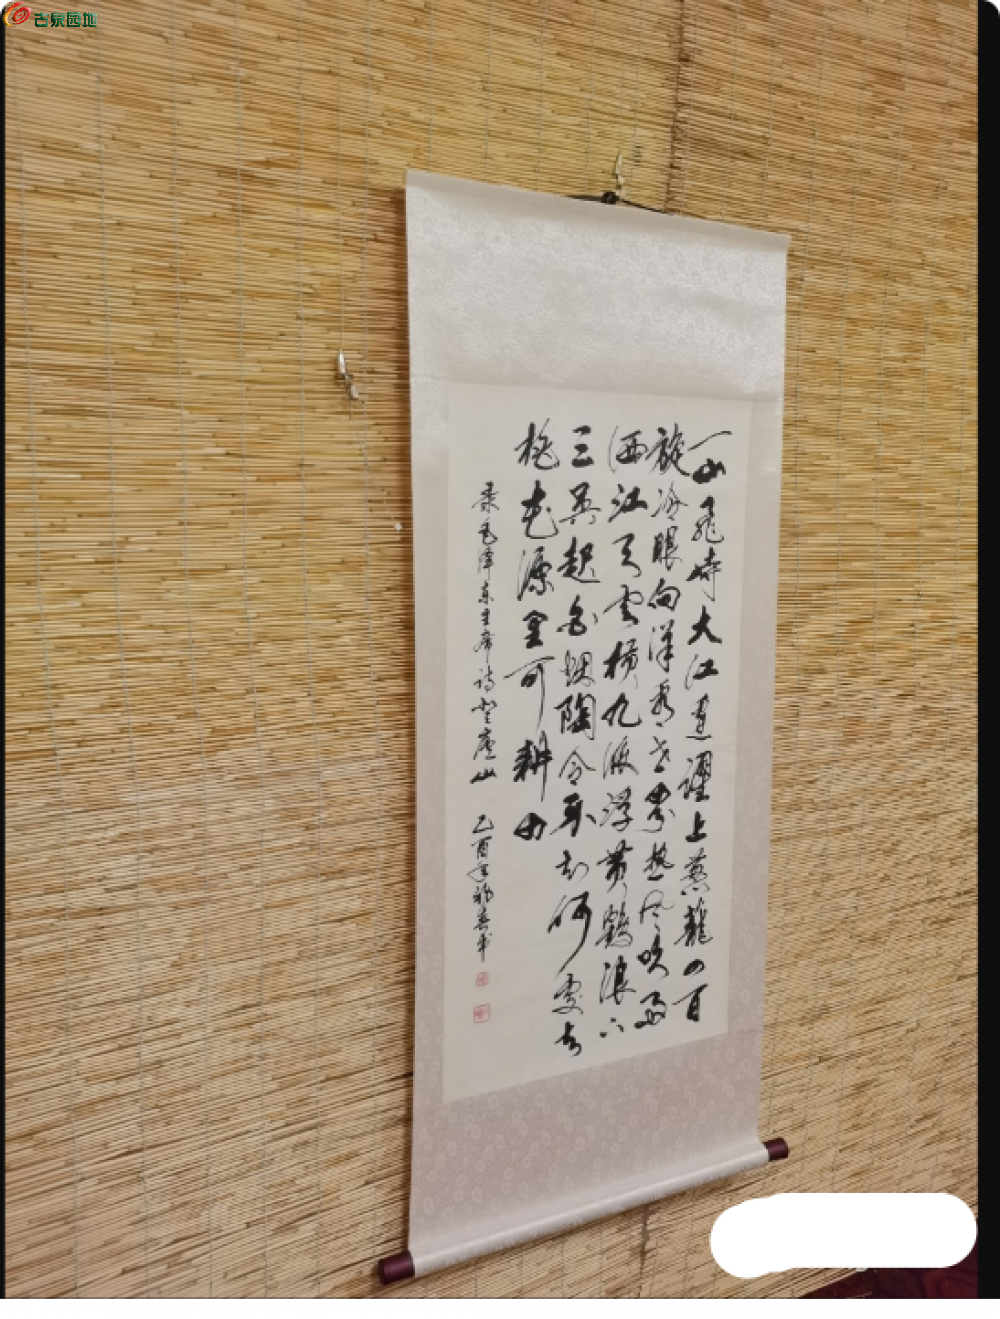 古泉园地
一山飞峙大江边跃上葱茏四百
旋冷眼向洋看世界热风吹雨
洒江天云横九派浮黄鹤浪下
三吴起白烟陶令不知何处去
桃花源里可耕田
录毛泽东主席诗登庐山 乙酉年初春